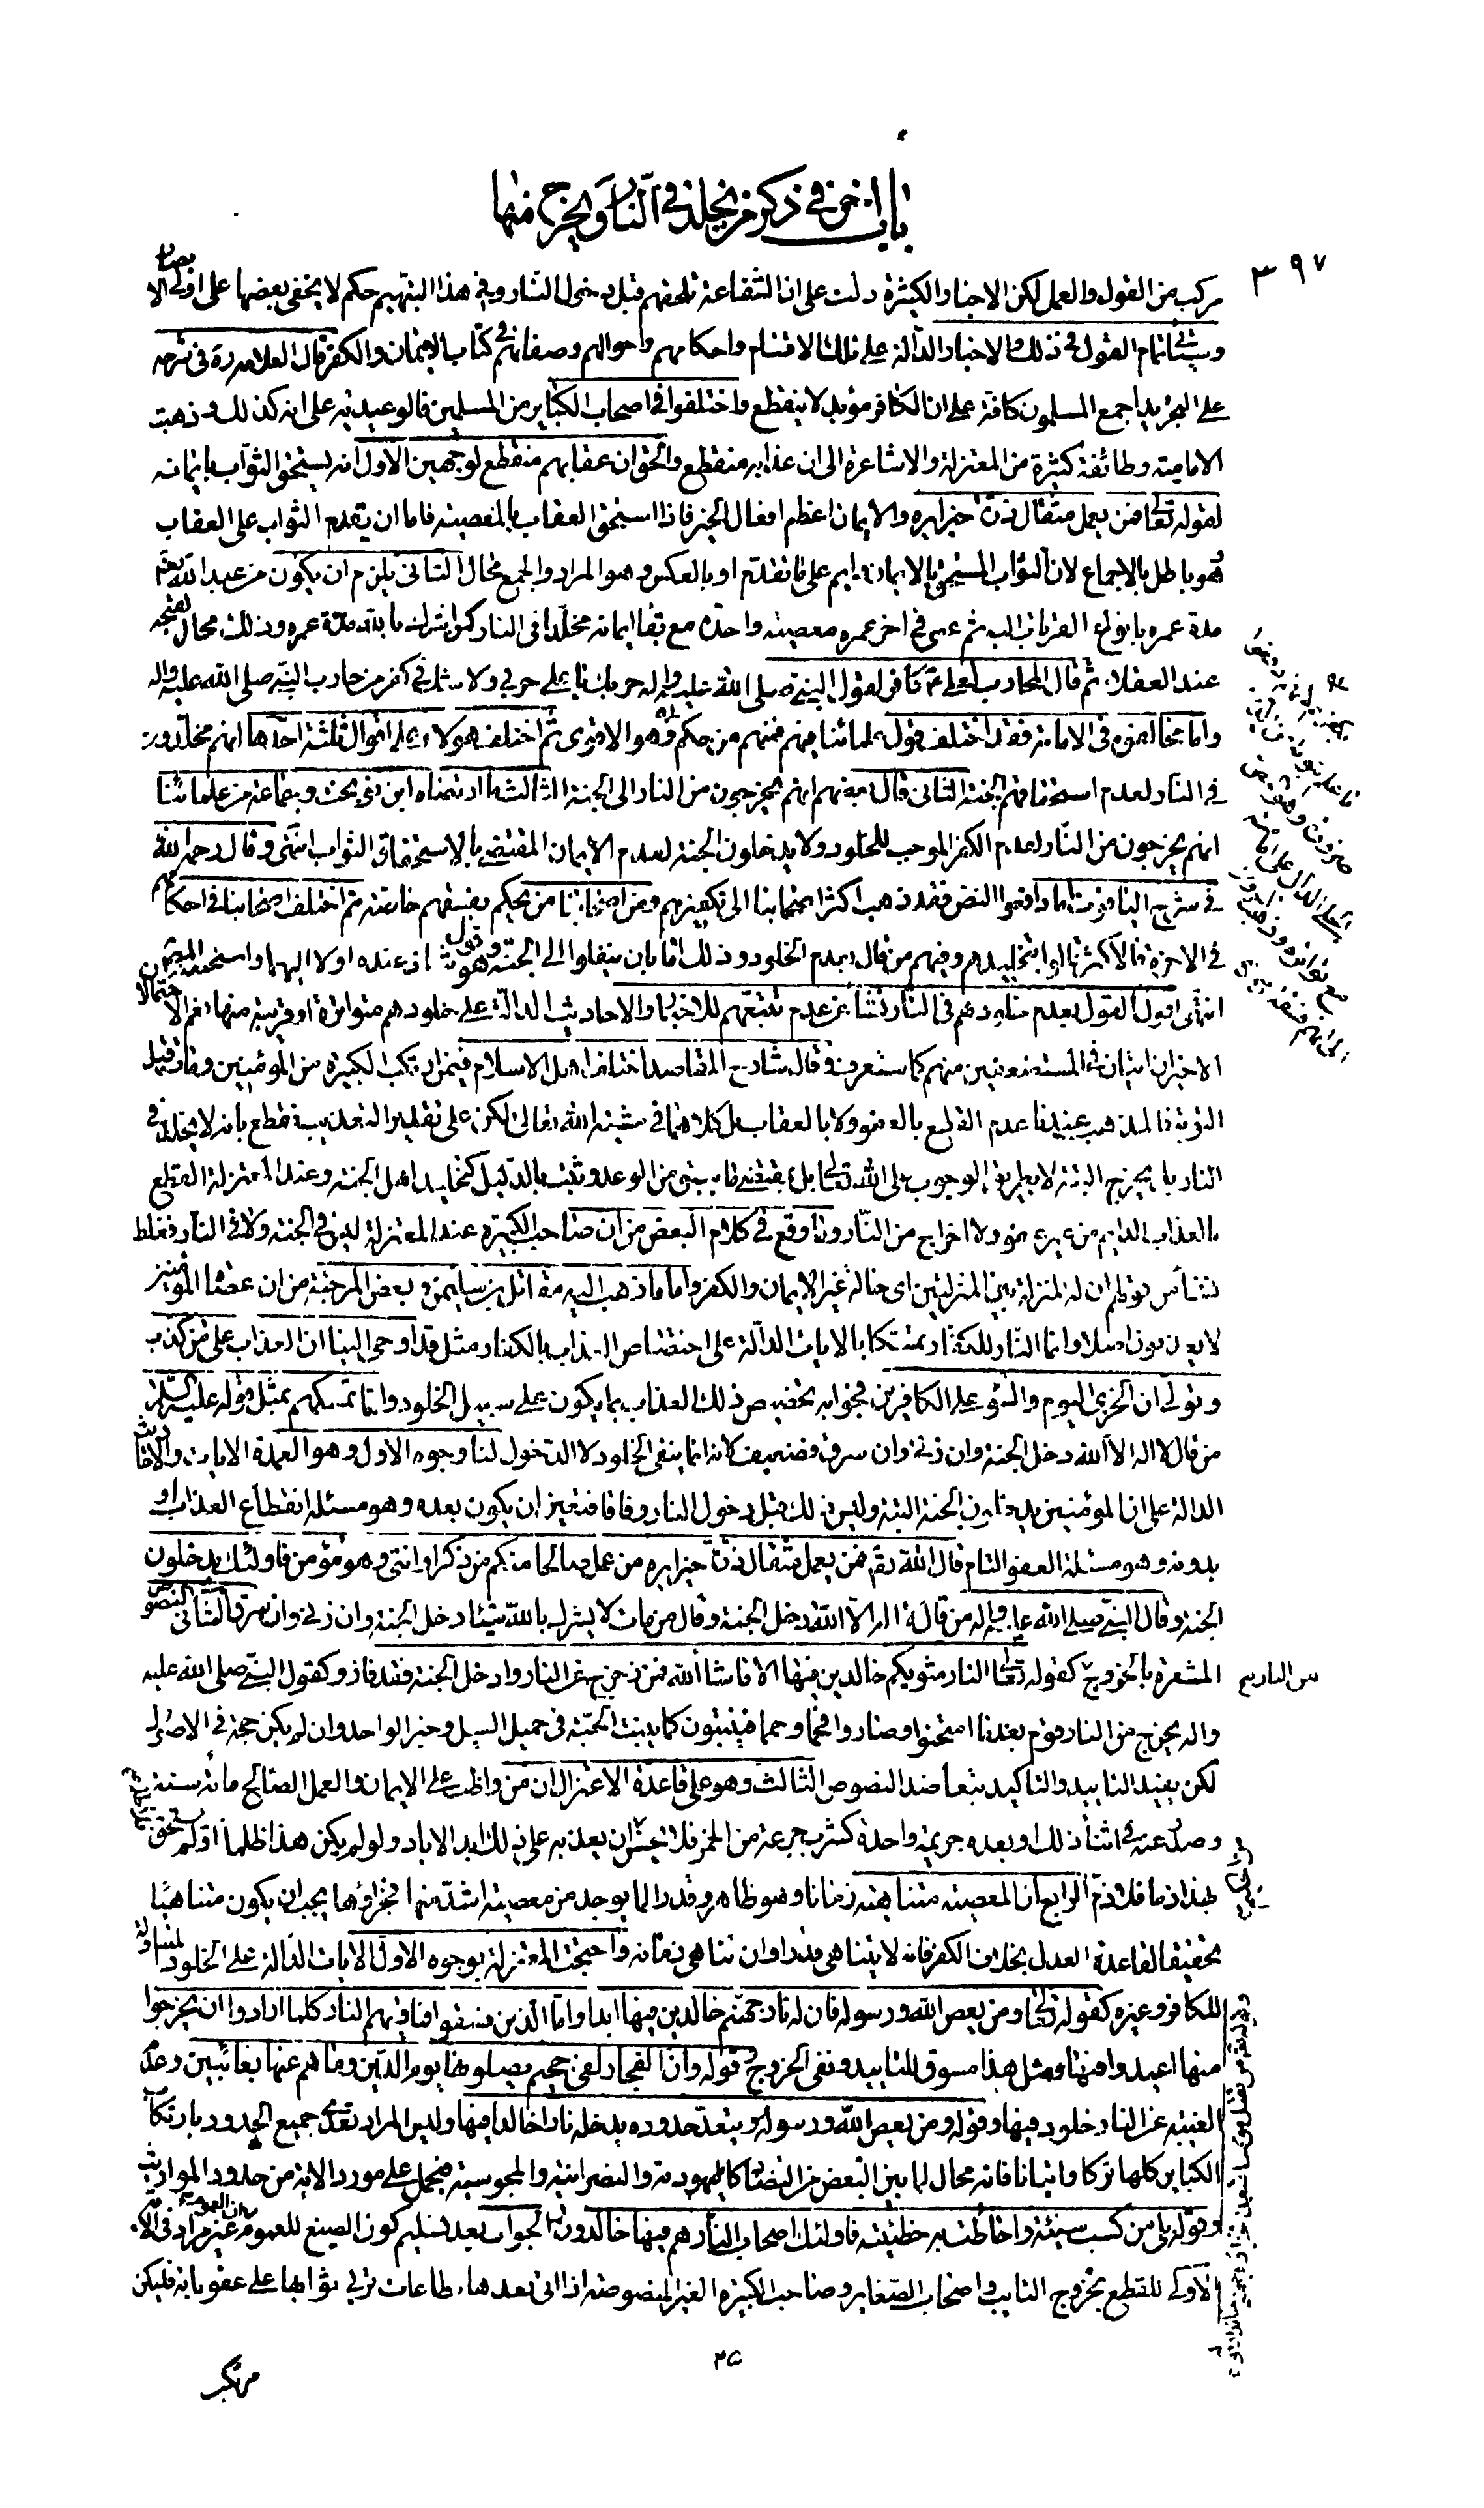 باب اخر في ذكر من يخلد في النار ومن يخرج منها
٣٩٧
مركب من القول والعمل لكن الاخبار الكثيرة دلت على ان الشفاعة تلحقهم قبل دخول النار وفي هذا التبهيم حكم لا يخفى بعضها على اولي الا
بصار
وسيأتي تمام القول في ذلك والاخبار الدالة على تلك الاقسام واحكامهم واحوالهم وصفاتهم في كتاب الايمان والكفر قال العلامة ره في شرحه
على التجريد اجمع المسلمون كافة على ان الكافر مؤبد لا ينقطع واختلفوا في اصحاب الكبائر من المسلمين فالوعيدية على انه كذلك وذهبت
الامامية وطائفة كثيرة من المعتزلة والاشاعرة الى ان عذابه منقطع والحق ان عقابهم منقطع لوجهين الاول انه يستحق الثواب بايمانه
لقوله تعالى فمن يعمل مثقال ذرة خيرا يره والايمان اعظم افعال الخير فاذا استحق العقاب بالمعصية فاما ان يقدم الثواب على العقاب
فهو باطل بالاجماع لان الثواب المستحق بالايمان دايم على ما تقدم او بالعكس وهو المراد والجمع محال الثاني يلزم ان يكون من عبد الله تعالى
مدة عمره بانواع القربات اليه ثم عصى في اخر عمره معصية واحدة مع بقاء ايمانه مخلدا في النار كمن اشرك بالله مدة عمره وذلك محال لقبحه
عند العقلاء ثم قال المحارب لعلي ع كافر لقول النبي صلى الله عليه واله حربك يا علي حربي ولا شك في كفر من حارب النبي صلى الله عليه واله
واما مخالفوه في الامامة فقد اختلف قول علمائنا فيهم فمنهم من حكم بكفرهم وهو الاقوى ثم اختلف هؤلاء على اقوال ثلثة احدها انهم مخلدون
في النار لعدم استحقاقهم الجنة الثاني قال بعضهم انهم يخرجون من النار الى الجنة الثالث ما ارتضاه ابن نوبخت وجماعة من علمائنا
انهم يخرجون من النار لعدم الكفر الموجب للخلود ولا يدخلون الجنة لعدم الايمان المقتضي بالاستحقاق الثواب انتهى وقال رحمه الله
في شرح الياقوت اما دافعوا النص فقد ذهب اكثر اصحابنا الى تكفيرهم ومن اصحابنا من يحكم بفسقهم خاصة ثم اختلف اصحابنا في احكامهم
في الاخرة فالاكثر قالوا بتخليدهم وفيهم من قال بعدم الخلود وذلك اما بان ينقلوا الى الجنة وهو قول شاذ عنده اولا اليهما واستحسنه المصنف
انتهى اقول القول بعدم خلودهم في النار نشأ من عدم تتبعهم للاخبار والاحاديث الدالة على خلودهم متواترة او قريبة منها نعم الاحتمالان
الاخيران اتيان في المستضعفين منهم كما ستعرف وقال شارح المقاصد اختلف اهل الاسلام فيمن ارتكب الكبيرة من المؤمنين ومات قبل
التوبة فالمذهب عندنا عدم القطع بالعفو ولا بالعقاب بل كلاهما في مشية الله تعالى لكن على تقدير التعذيب نقطع بانه لا يخلد في
النار بل يخرج البتة لا بطريق الوجوب على الله تعالى بل بمقتضى ما سبق من الوعد وثبت بالدليل كتخليد اهل الجنة وعند المعتزلة القطع
بالعذاب الدايم من غير عفو ولا اخراج من النار وما وقع في كلام البعض من ان صاحب الكبيرة عند المعتزلة ليس في الجنة ولا في النار فغلط
نشأ من قولهم ان له المنزلة بين المنزلتين اى حالة غير الايمان والكفر واما ما ذهب اليه مقاتل بن سليمن وبعض المرجئة من ان عصاة المؤمنين
لا يعذبون اصلا وانما النار للكفار تمسكا بالايات الدالة على اختصاص العذاب بالكفار مثل قد اوحي الينا ان العذاب على من كذب
وتولى ان الخزي اليوم والسوء على الكافرين فجوابه تخصيص ذلك العذاب بما يكون على سبيل الخلود واما تمسكهم بمثل قوله عليه السلام
من قال لا اله الا الله دخل الجنة وان زنى وان سرق فضعيف لانه انما ينفي الخلود لا الدخول لنا وجوه الاول وهو العمدة الايات والاحاديث
الدالة على ان المؤمنين يدخلون الجنة البتة وليس ذلك قبل دخول النار وفاقا فتعين ان يكون بعده وهو مسئلة انقطاع العذاب او
بدونه وهو مسئلة العفو التام قال الله تع فمن يعمل مثقال ذرة خيرا يره من عمل صالحا منكم من ذكر او انثى وهو مؤمن فاولئك يدخلون
الجنة وقال النبي صلى الله عليه واله من قال لا اله الا الله دخل الجنة وقال من مات لا يشرك بالله شيئا دخل الجنة وان زنى وان سرق الثاني النصوص
المشعرة بالخروج كقوله تعالى النار مثويكم خالدين فيها الا ما شاء الله فمن زحزح عن النار وادخل الجنة فقد فاز وكقول النبي صلى الله عليه
من النار صح
واله يخرج من النار قوم بعدما امتحشوا وصاروا فحما وحمما فينبتون كما ينبت الحبة في حميل السيل وخبر الواحد وان لم يكن حجة في الاصول
لكن يفيد التاييد والتاكيد بتعاضد النصوص الثالث وهو على قاعدة الاعتزال ان من واظب على الايمان والعمل الصالح مائة سنة
وصدر عنه في اثناء ذلك او بعده جريمة واحدة كشرب جرعة من الخمر فلا يحسن ان يعذبه على ذلك ابد الاباد ولو لم يكن هذا ظلما او لم يستحق
لهذا ذما فلا ذم الرابع ان المعصية متناهية زمانا وهو ظاهر وقدرا لما يوجد من معصية اشد منها فجزاؤها يجب ان يكون متناهيا
تحقيقا لقاعدة العدل بخلاف الكفر فانه لا يتناهى قدرا وان تناهى زمانه واحتجت المعتزلة بوجوه الاول الايات الدالة على الخلود المتناولة
للكافر وغيره كقوله تعالى ومن يعص الله ورسوله فان له نار جهنم خالدين فيها ابدا واما الذين فسقوا فمأويهم النار كلما ارادوا ان يخرجوا
منها اعيدوا فيها ومثل هذا مسوق للتابيد ونفي الخروج وقوله وان الفجار لفي جحيم يصلونها يوم الدين وما هم عنها بغائبين وعدم
الغيبة عن النار خلود فيها وقوله ومن يعص الله ورسوله ويتعد حدوده يدخله نارا خالدا فيها وليس المراد تعدي جميع الحدود بارتكاب
الكباير كلها تركا واتيانا فانه محال لما بين البعض من التضاد كاليهودية والنصرانية والمجوسية فيحمل على مورد الاية من حدود المواريث
وقوله بلى من كسب سيئة واحاطت به خطيئته فاولئك اصحاب النار هم فيها خالدون الجواب بعد تسليم كون الصيغ للعموم غير مراد في الا
الاولى للقطع بخروج التايب واصحاب الصغاير وصاحب الكبيرة الغير المنصوصة اذا اتى بعدها طاعات يربي ثوابها على عقوباته فليكن
مرتكب